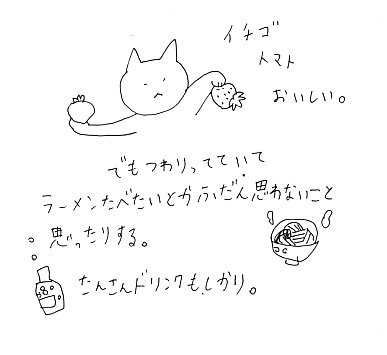 イチゴ
トマト
おいしい。
でもつわりってていて
ラーメンたべたいとかふだん思わないこと
思ったりする。
たんさんドリンクもしかり。